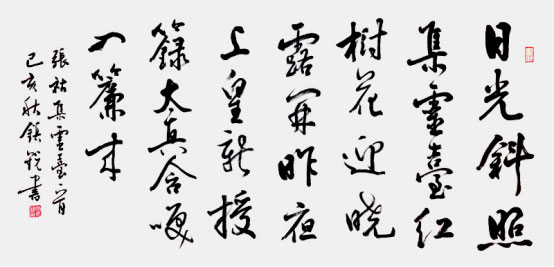 日光斜照
集靈臺紅
樹花迎曉
露開昨夜
上皇新授
籙太真含咲
入簾來
張祜集靈臺一首
己亥秋鎮銳書